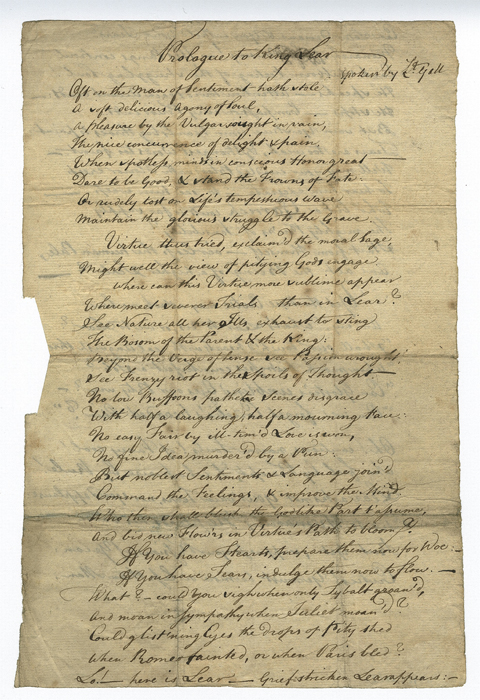 Prologue to King Lear
spoken by Ld. Gall
Oft on the Man of Sentiment hath stole
A soft, delicious agony of Soul,
A pleasure by the Vulgar sought in vain,
The nice concurrence of delight & pain,
When spotless minds in conscious Honor great —
Dare to be Good, & stand the Frowns of Fate.
Or rudely tost on Life's tempestuous wave
Maintain the glorious struggle to the Grave.
Virtue thus tried, exclaim'd the moral Sage,
Might well the view of pitying Gods engage
where can this Virtue more sublime appear
Where meet severer Trials than in Lear?
See Nature all her Ills exhaust to sting
The Bosom of the Parent & the King:
Beyond the Verge of Sense see Passion wrought
See Frenzy riot in the Spoils of Thought —
No low Buffoons pathetic Scenes disgrace
With half a laughing, half a mourning Face:
No easy Fair by ill-tim'd Love is won,
No fine Idea murder'd by a Pun:
But noblest Sentiments & Language join'd
Command the Feelings, & improve the Mind.
Who then shall blush the Godlike Part t'assume,
And bid new Flow'rs in Virtue's Path to bloom?
If You have Hearts, prepare them now for Woe: —
If You have Tears, indulge them now to flow. —
What? — could You sigh when only Tybalt groan'd,
And moan in Sympathy when Juliet moan'd?
Could glist'ning Eyes the drops of Pity shed
when Romeo fainted, or when Paris bled?
Lo! — here is Lear — Grief-stricken Lear appears: —